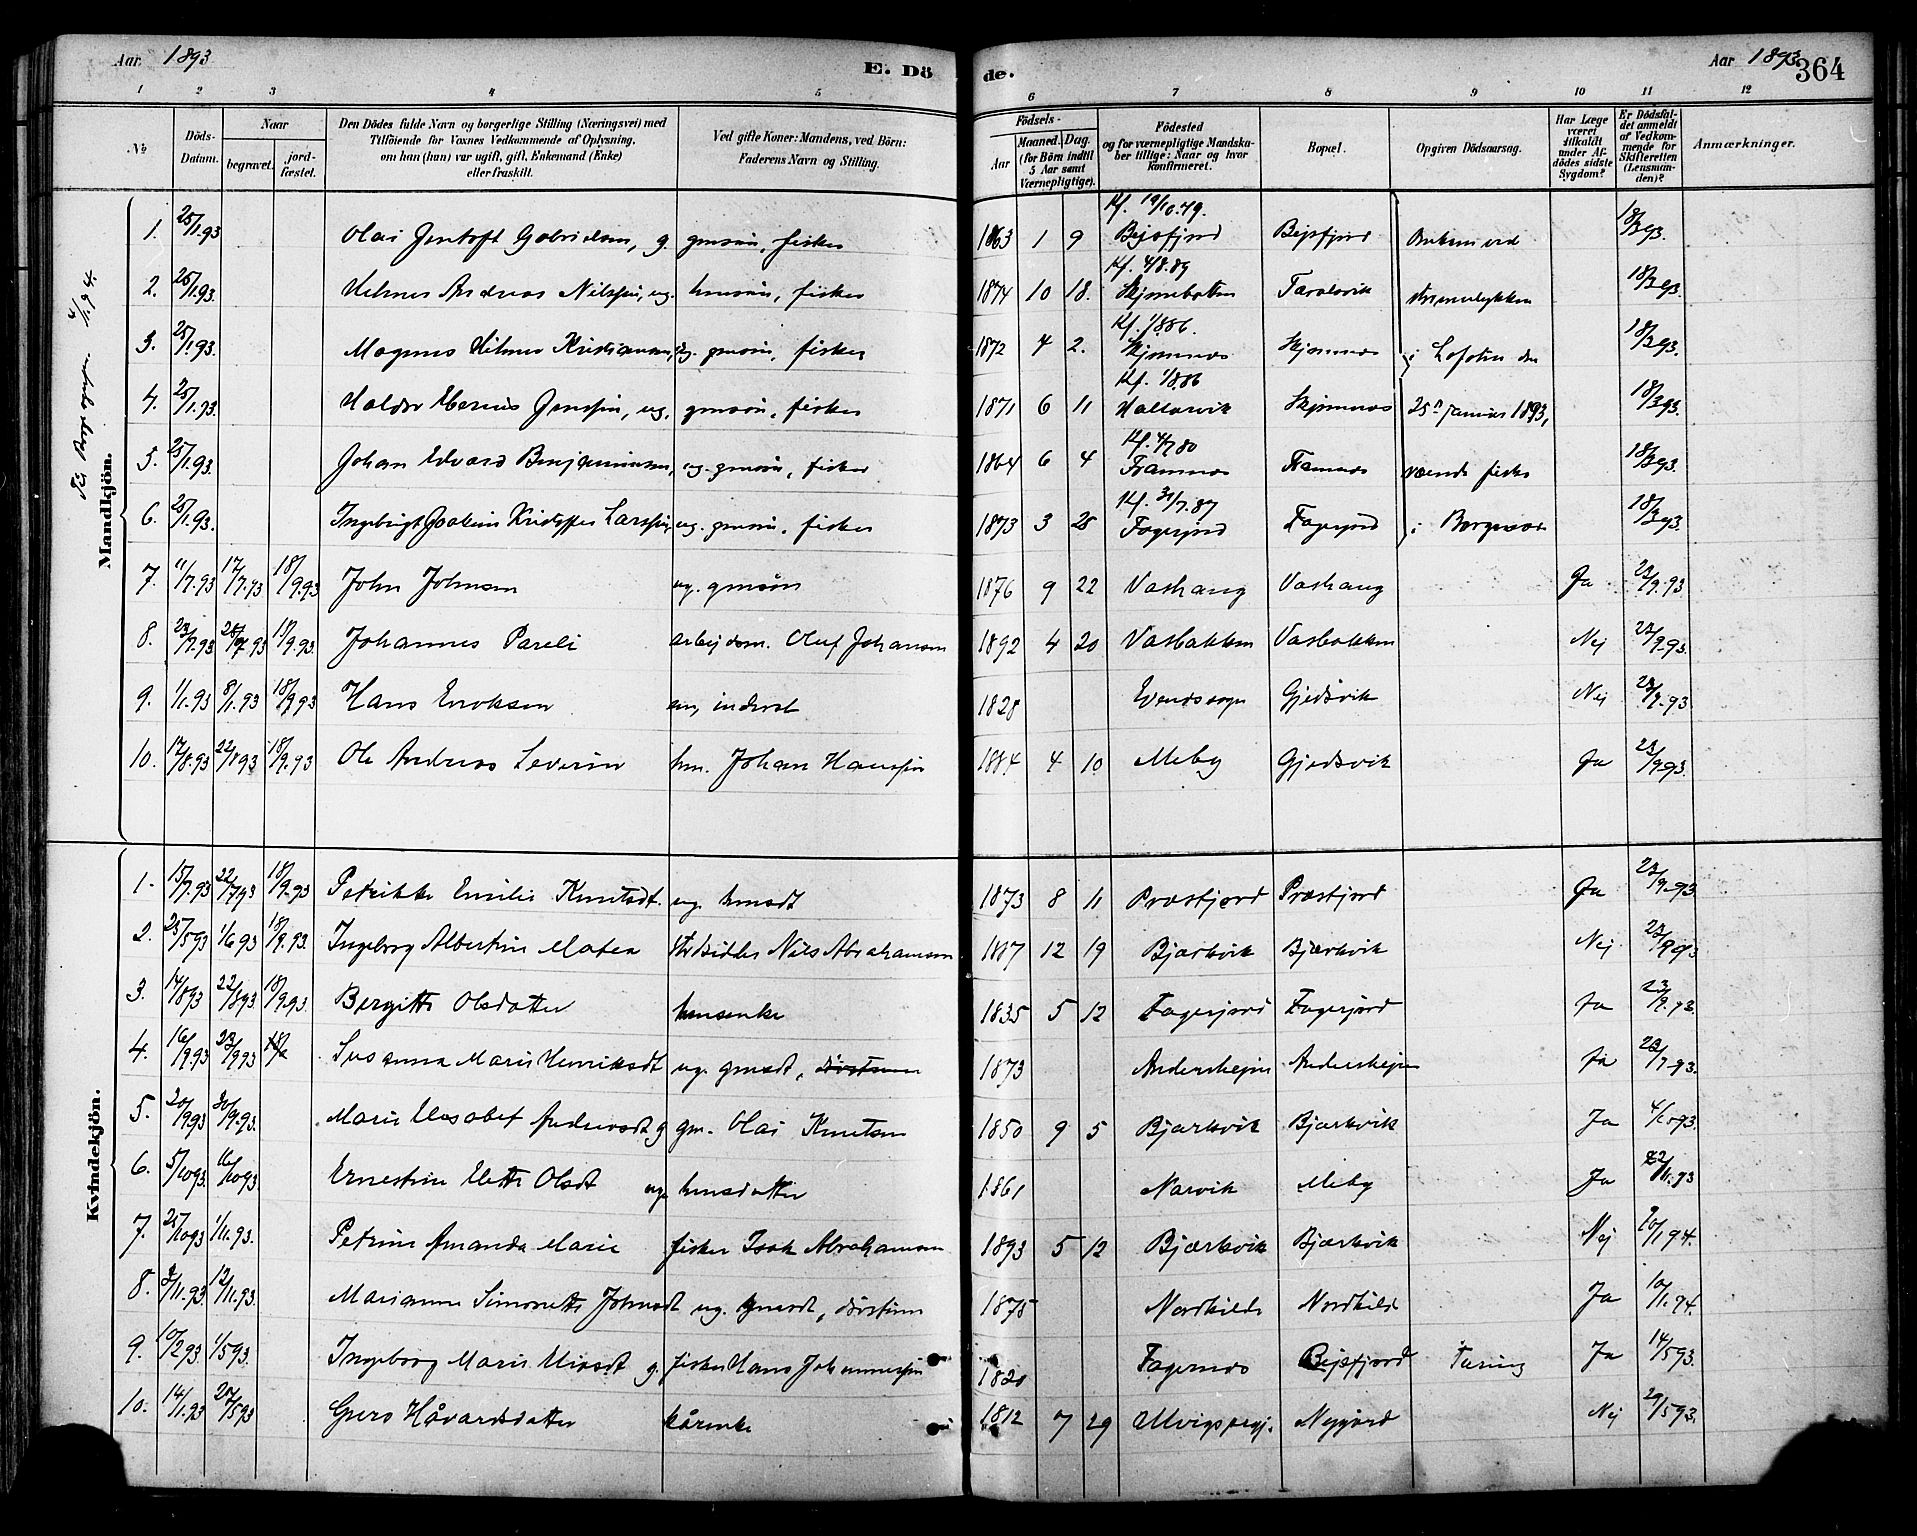 Aar. 1893
E. Dö
de.
Aar 1893
364
1 2 3 4 5 6 7 8 9 10 11 12
No
Döds-Datum.
Naar
begravet.
jord-fæstet.
Den Dödes fulde Navn og borgerlige Stilling (Næringsvei) med
Tilföiende for Voxnes Vedkommende af Oplysning,
om han (hun) var ugift, gift, Enkemand (Enke)
eller fraskilt.
Ved gifte Koner: Mandens, ved Börn:
Faderens Navn og Stilling.
Födsels-
Aar
Maaned. Dag.
(for Börn indtil
5 Aar samt
Værnepligtige).
Födested
og for værnepligtige Mandska-
ber tillige: Naar og hvor
konfirmeret.
Bopæl.
Opgiven Dödsaarsag.
Har Læge
været
tilkaldt
under Af-
dödes sidste
Sygdom?
Er Dödsfal-
det anmeldt
af Vedkom-
mende for
Skifteretten
(Lensman-
den)?
Anmærkninger.
Mandkjön.
1. 25/1.93 Olai Jentoft Gabrielsen, g. gmsøn, fisker 1863 1 9 Kf. 19/10.79. Bejsfjord Bejsfjord 18/3 93.
2. 25/1.93 Hilmer Andreas Nilssen, ug. husmsøn, fisker 1874 10 18. Kf. 4/8.89 Skjomebotten Taraldsvik 18/3 93.
3. 25/1.93 Magnus Hilmer Kristiansen, ug. gmsøn, fisker 1872 4 2. Kf. 1/8 86. Skjomnæs Skjomnæs i Lofoten den 18/3 93.
4. 25/1.93 Haldor Marius Jenssen, ug. gmsøn, fisker 1871 6 11 Kf. 1/8 86 Hallarvik Skjomnæs 25de januar 1893, 18/3 93.
5. 25/1.93 Johan Edvard Benjaminsen, ug. gmsøn, fisker 1864 6 4 Kf. 4/7 80 Framnæs Framnæs fisker 18/3 93.
6. 25/1.93. Ingebrigt Joakim Kristoffer Larssen, ug. gmsøn, fisker 1873 3 28 Kf. 31/7.87 Fagerjord Fagerjord i 18/3 93.
7. 11/7.93 17/7.93 18/9.93 John Johnsen ug. gmsøn 1876 9 22 Vashaug Vashaug Ja 23/9.93
8. 23/7.93 28/7 93 18/9.93. Johannes Pareli arbejdsm. Oluf Johansen 1892 4 20 Vasbakken Vasbakken Nej 23/9.93.
9. 1/1.93 8/1.93 18/9 93 Hans Eriksen em, inderst 1828 Evendssogn Gjedsvik Nej 23/9.93
10. 17/8.93 22/8 93 18/9.93 Ole Andreas Severin hm. Johan Hanssen 1884 4 10 Meby Gjedsvik Ja 23/9 93.
Kvindekjön.
1. 15/7.93 22/7 93 18/9.93 Petrikke Emilie Knutsdt. ug. hmsdt 1873 8 11 Præstjord Præstjord Ja 23/9.93
2. 25/5 93 1/6 93 18/9.93. Ingeborg Albertine Matea Nils Abrahamsen 1887 12 19 Bjærkvik Bjærkvik Nej 23/9 93
3. 14/8 93 22/8 93 18/9.93 Bergitte Olsdatter hmsenke 1835 5 12 Fagerjord Fagerjord Ja 23/9.93
4. 16/9 93 23/9 93 Susanna Marie Henriksdt ug. gmsdt, 1873 Andershejen Andershejen Ja
5. 20/9 93 30/9.93. Marie Elisabet Andreasdt g gm. Olai Knutsen 1850 9 5 Bjærkvik Bjærkvik Ja 4/10 93.
6. 5/10 93 16/10 93 Ernestine Mette Olsdt ug. hmsdatter 1861 Narvik Meby Ja
7. 25/10 93 1/11.93. Petrine Amanda Marie fisker Isak Abrahamsen 1893 5 12 Bjærkvik Bjærkvik Nej 20/1 94.
8. 12/11.93. Marianne Simonette Johnsdt ug. gmsdt, 1875 Nordkilde Nordkilde Ja 10/1.94.
9. 10/2 93 1/5 93. Ingeborg Marie g. fisker Hans Johannessen 1820 Fagernæs Bejsfjord Tæring Ja 14/5 93.
10. 14/1.93 20/5 93 Guro Håvardsdatter kårenke 1812 7 29 Nygjord Nej 29/5 93.